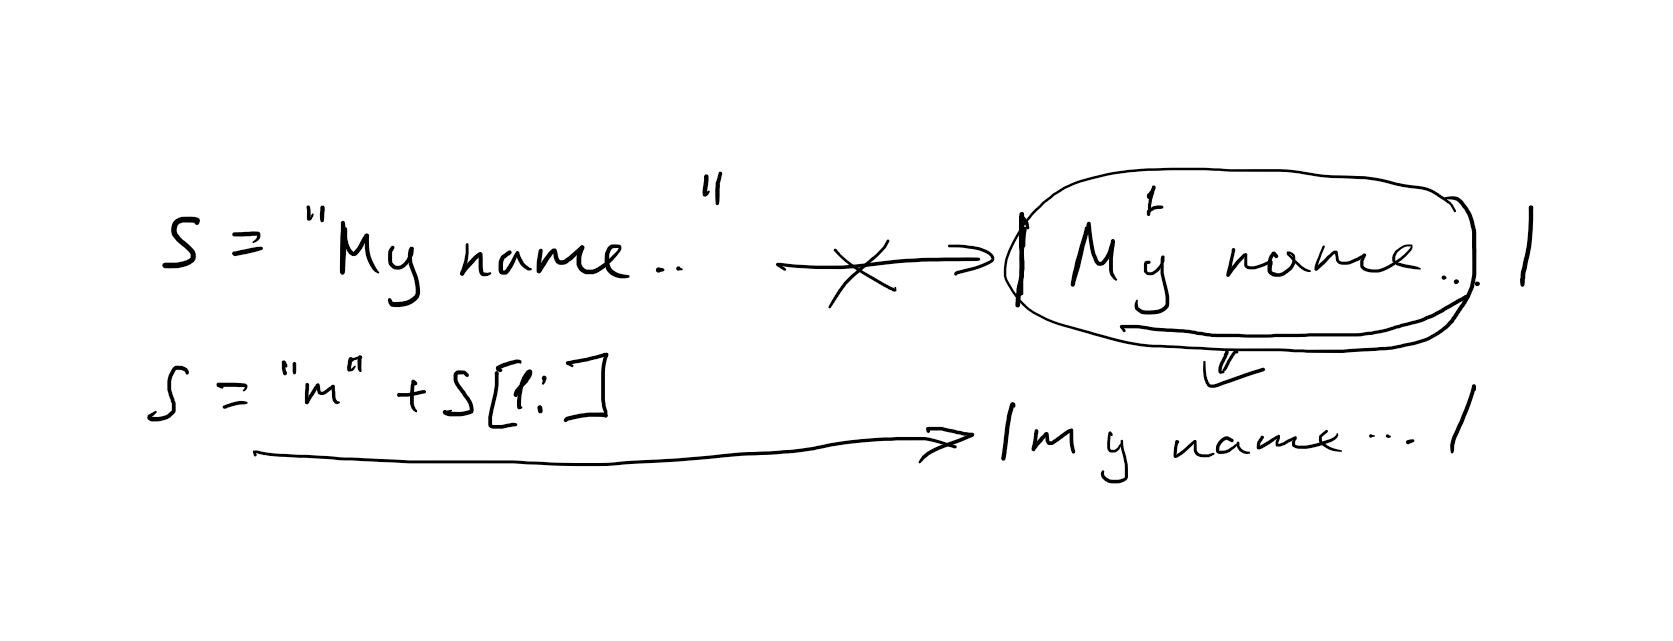 S = "My name.." | My name... |
1
S = "m" + S[1:] | my name... |